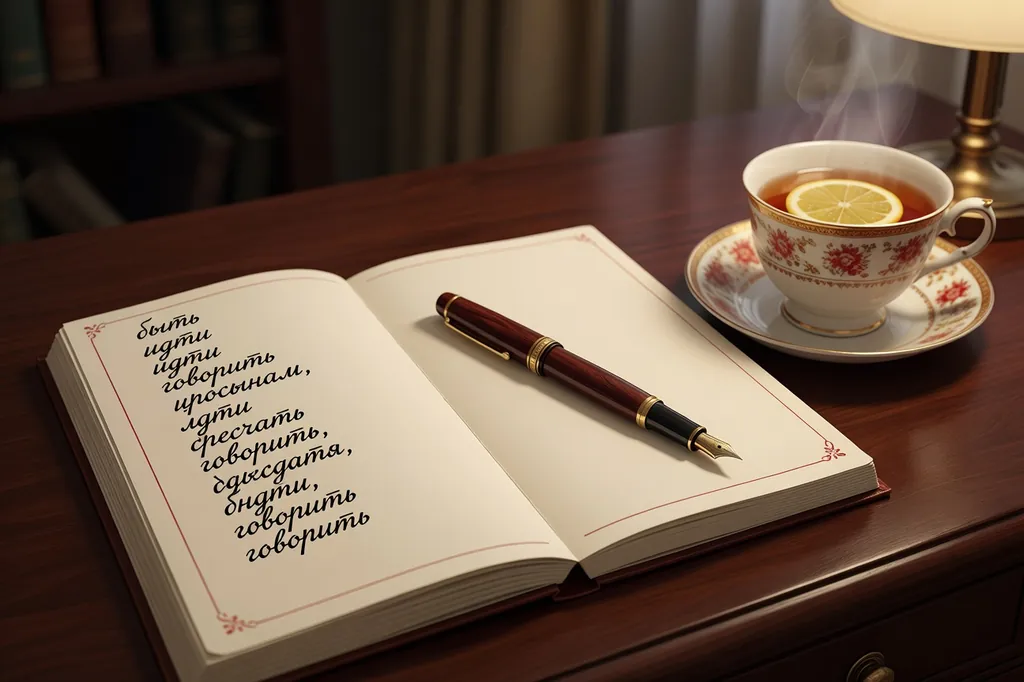 быть
идти
идти
говорить
иросынам,
лдти
сресчать
говорить,
сдысдатя,
бндти,
говорить
говорить